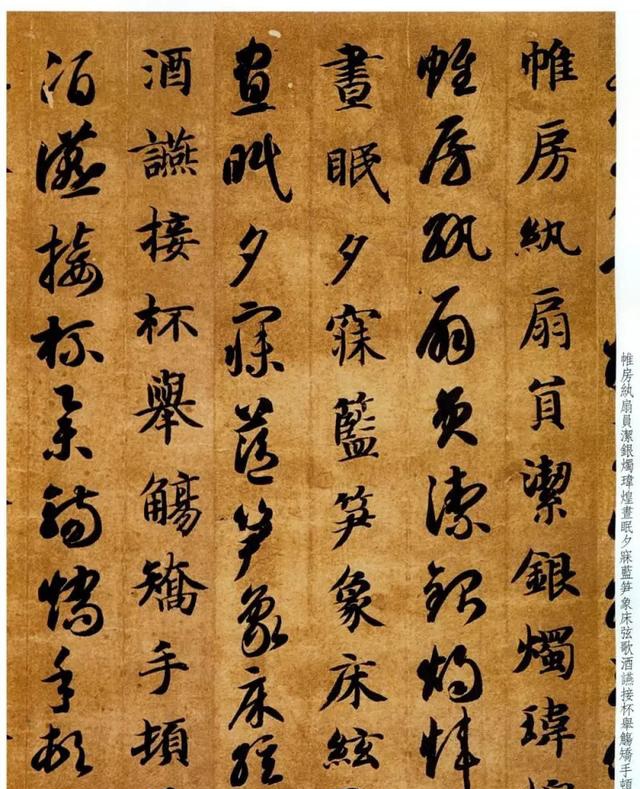 帷房紈扇員潔銀燭瑋
帷房紈扇員潔銀燭煒
晝眠夕寐籃笋象床絃
晝眠夕寐藍笋象床絃
酒讌接杯舉觴矯手頓
酒讌接杯舉觴矯手頓
帷房紈扇員潔銀燭瑋煌晝眠夕寐藍笋象床弦歌酒讌接杯舉觴矯手頓